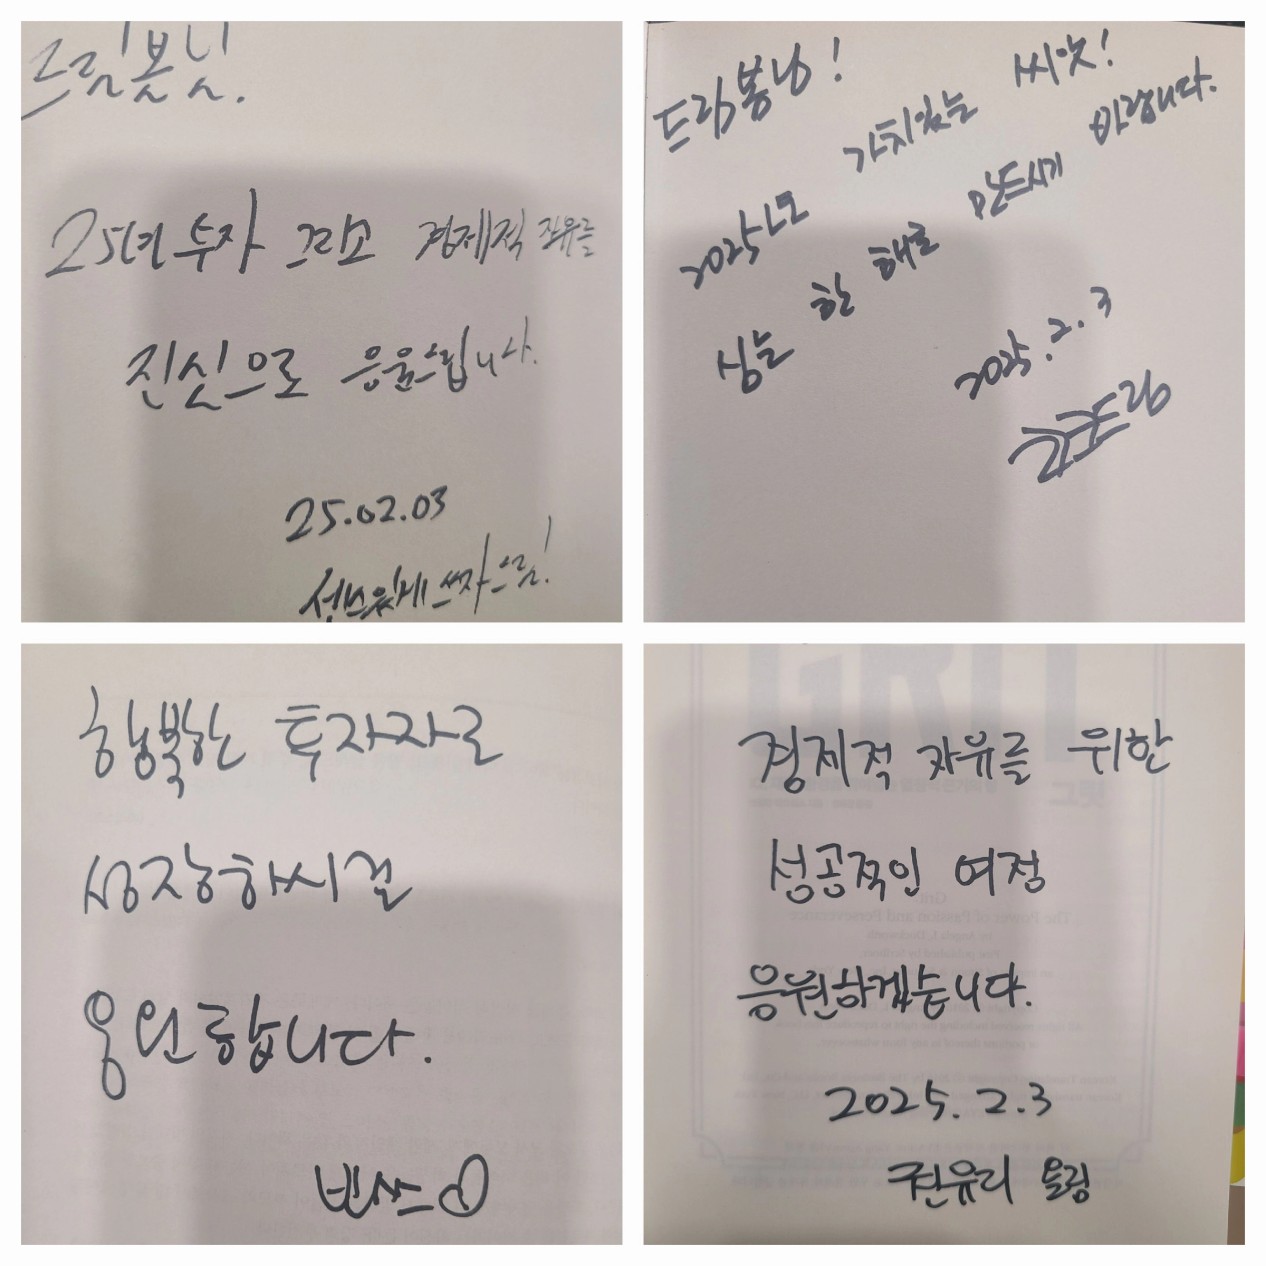 드림봉님.
25년 투자 그리고 경제적 자유를
진심으로 응원드립니다.
25.02.03
드림!
드림봉님!
2025년도 가치있는 씨앗!
심는 한 해로 만드시기 바랍니다.
2025.2.3
드림
행복한 투자자로
성장하시길
응원합니다.
경제적 자유를 위한
성공적인 여정
응원하겠습니다.
2025.2.3
권유리 올림
GRIT
그릿